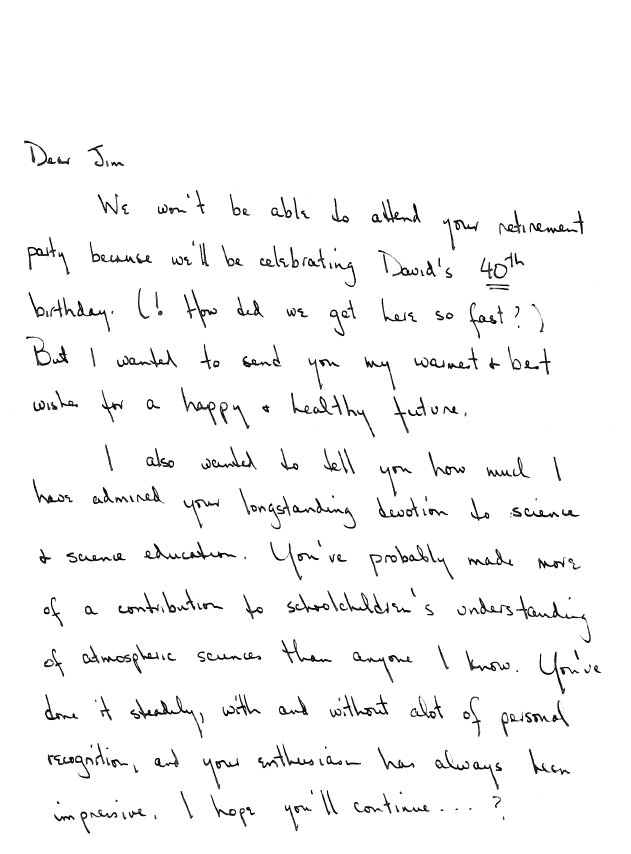 Dear Jim
We won't be able to attend your retirement
party because we'll be celebrating David's 40th
birthday. (! How did we get here so fast?)
But I wanted to send you my warmest & best
wishes for a happy & healthy future.
I also wanted to tell you how much I
have admired your longstanding devotion to science
& science education. You've probably made more
of a contribution to schoolchildren's understanding
of atmospheric sciences than anyone I know. You've
done it steadily, with and without alot of personal
recognition, and your enthusiasm has always been
impressive. I hope you'll continue... ?